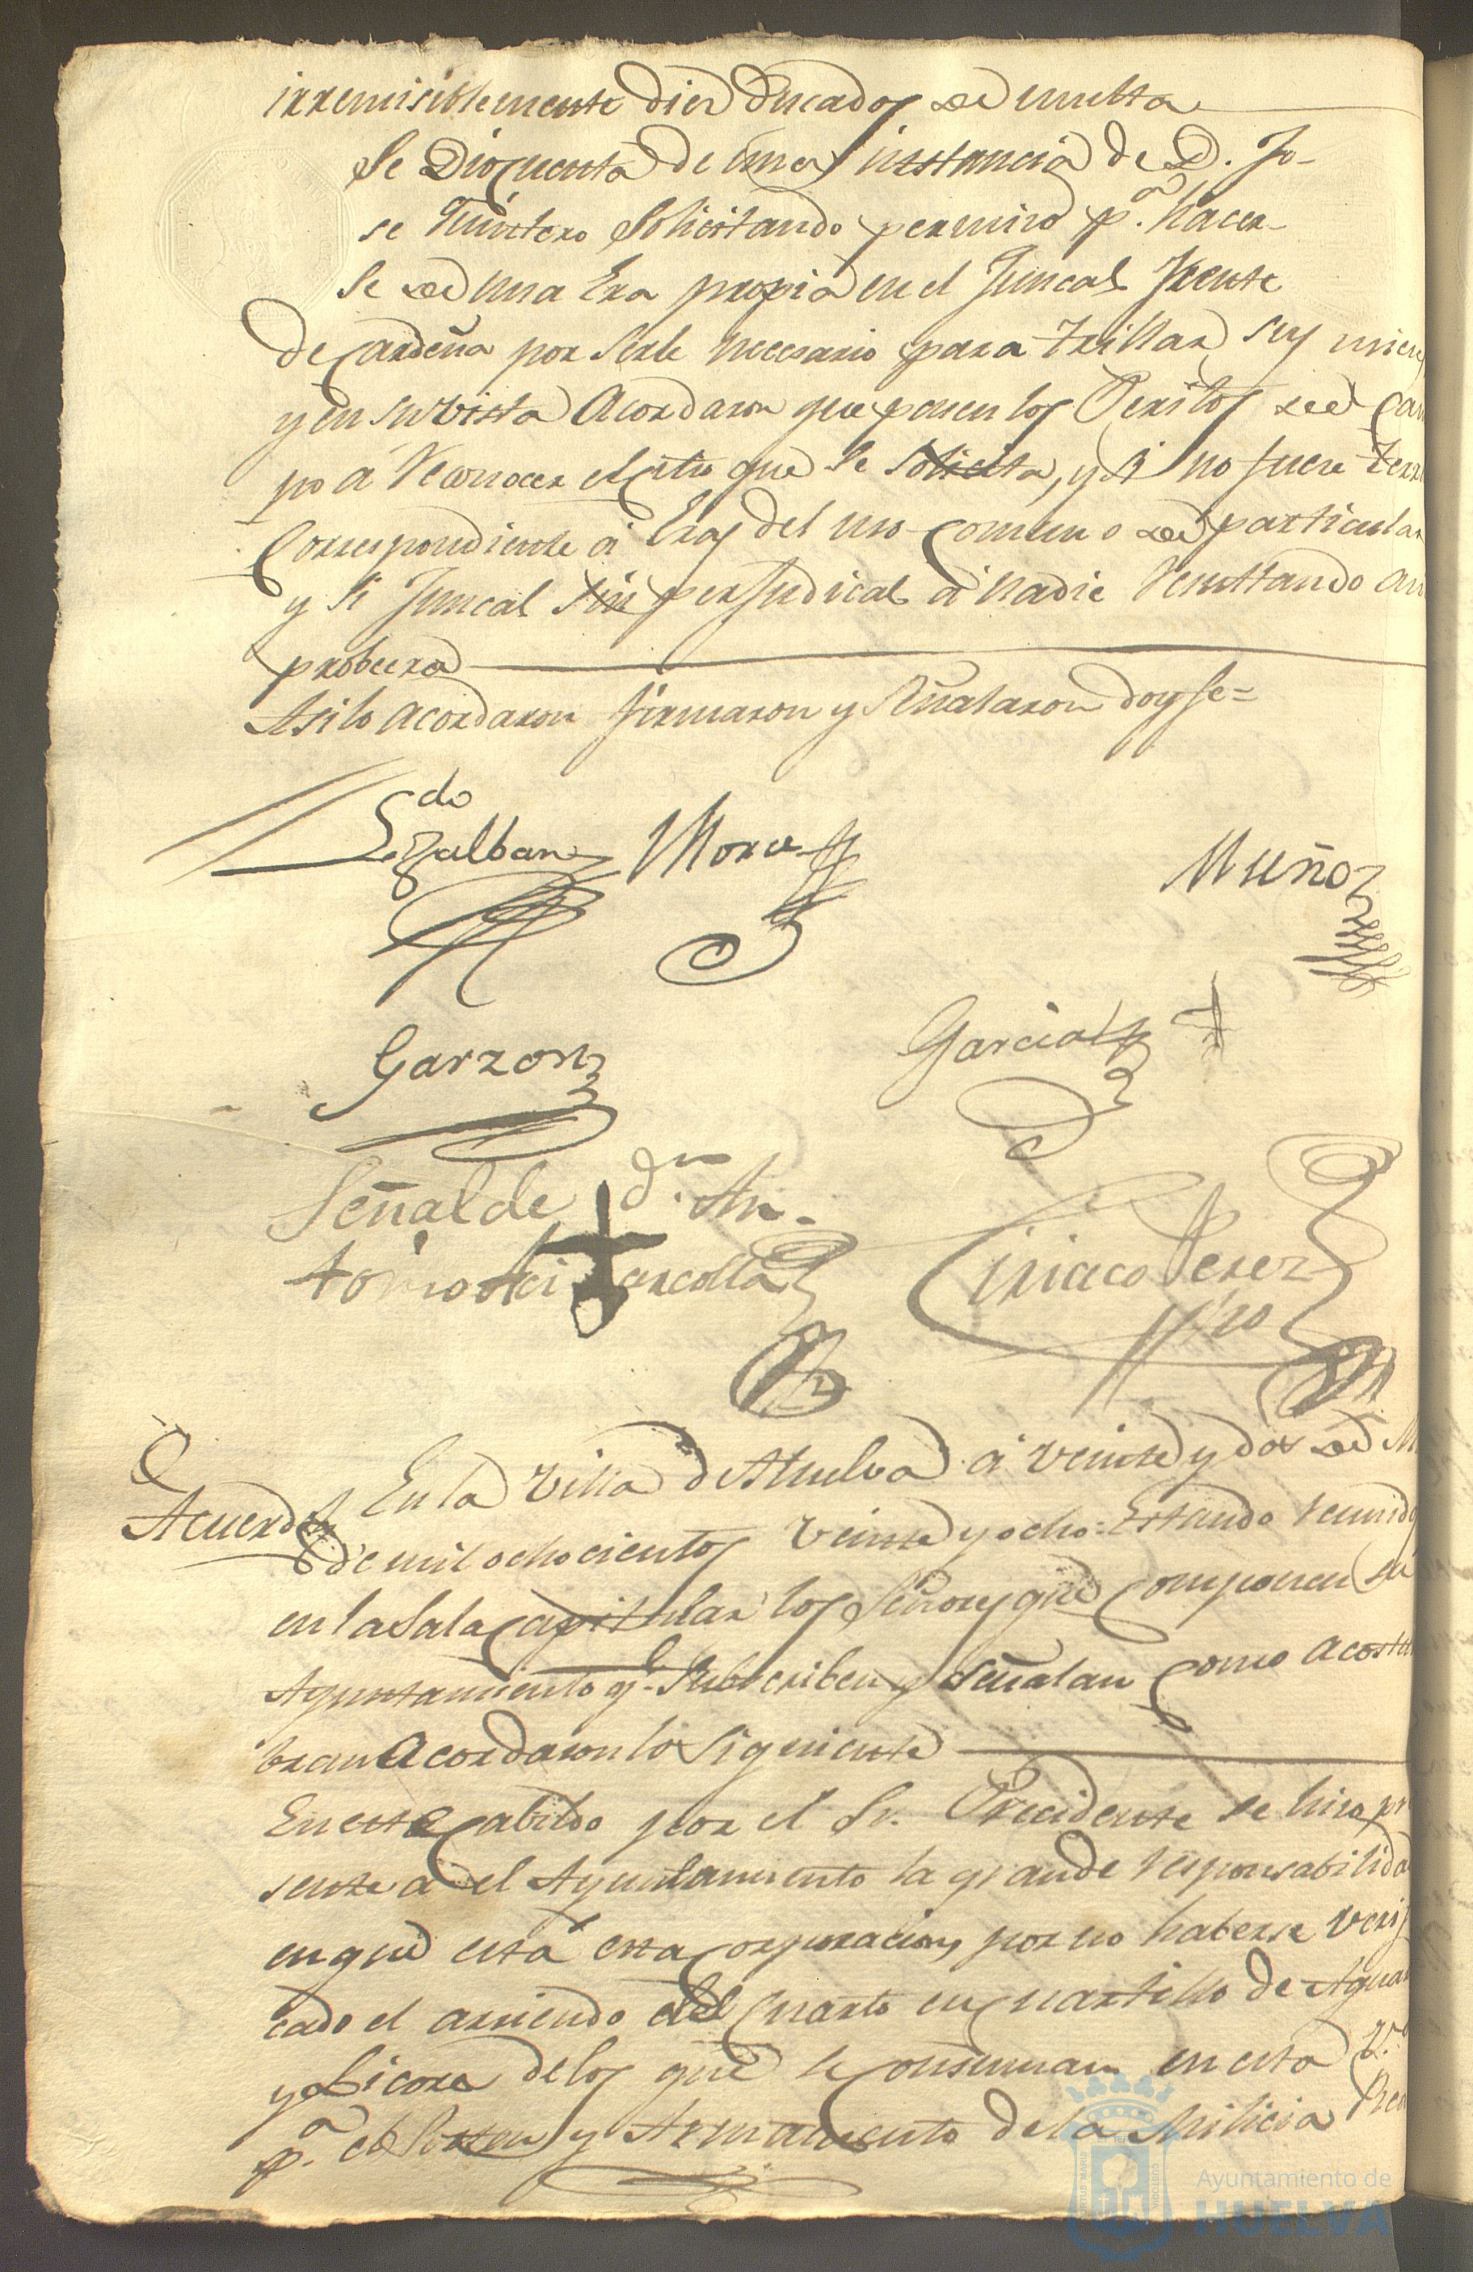 irremisiblemente diez ducados de multa
Se Dio cuenta de una instancia de D. Jo-
se Quintero Solicitando permiso p.ª hacer-
se de una Era propia en el Juncal frente
de Cardeña por serle necesario para trillar sus mies
y en su vista Acordaron que pasen los Peritos de Cam
po a Reconocer el sitio que se solicita, y si no fuere terr
Correspondiente a Eras del uso comun o de particular
y si Juncal sin perjudical a nadie Resultando an
probeera
Asi lo acordaron firmaron y Señalaron doy fe =
L.do
Zalban Mora
Muñoz
Garzon
Garcia
Señal de d.n An-
tonio Azcarcolla
Ciriaco Perez
Acuerdo
En la Villa de Huelva a veinte y dos de M
de mil ochocientos veinte y ocho: Estando reunido
en la Sala Capitular los Señores que componen su
Ayuntamiento q.e Subscriben y Señalan Como acostu
bran Acordaron lo siguiente
En este Cabildo por el Sr. Precidente se hizo pr
sente a el Ayuntamiento la grande responsabilida
en que esta esta Corporacion, por no haberse verif
cado el arriendo del Cuarto en Cuartillo de Aguar
y Licores de los que se Consuman en esta V.ª
p.ª el Vesten y Armamento de la Milicia Rea
Ayuntamiento de
HUELVA